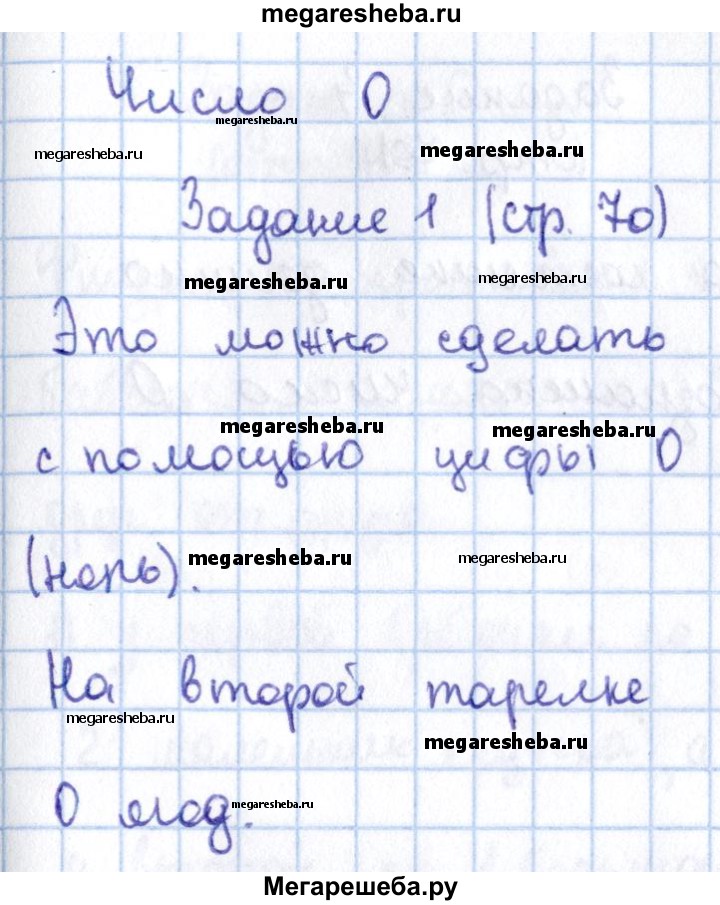 megaresheba.ru
Число 0
megaresheba.ru
megaresheba.ru
megaresheba.ru
Задание 1 (стр. 70)
megaresheba.ru
megaresheba.ru
Это можно сделать
megaresheba.ru
megaresheba.ru
с помощью цифры 0
megaresheba.ru
megaresheba.ru
(ноль).
На второй тарелке
megaresheba.ru
megaresheba.ru
0 ягод.
megaresheba.ru
Мегарешеба.ру